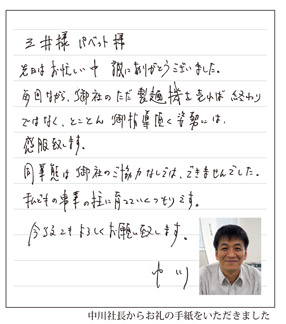 三井様 パペット様
先日はお忙しい中 誠にありがとうございました。
毎回ながら、御社のただ製麺機を売れば終わり
ではなく、とことん御指導頂く姿勢には、
感服致します。
同業態は御社のご協力なしでは、できませんでした。
私どもの事業の柱に育っていくつもりです。
今後ともよろしくお願い致します。
中川
中川社長からお礼の手紙をいただきました